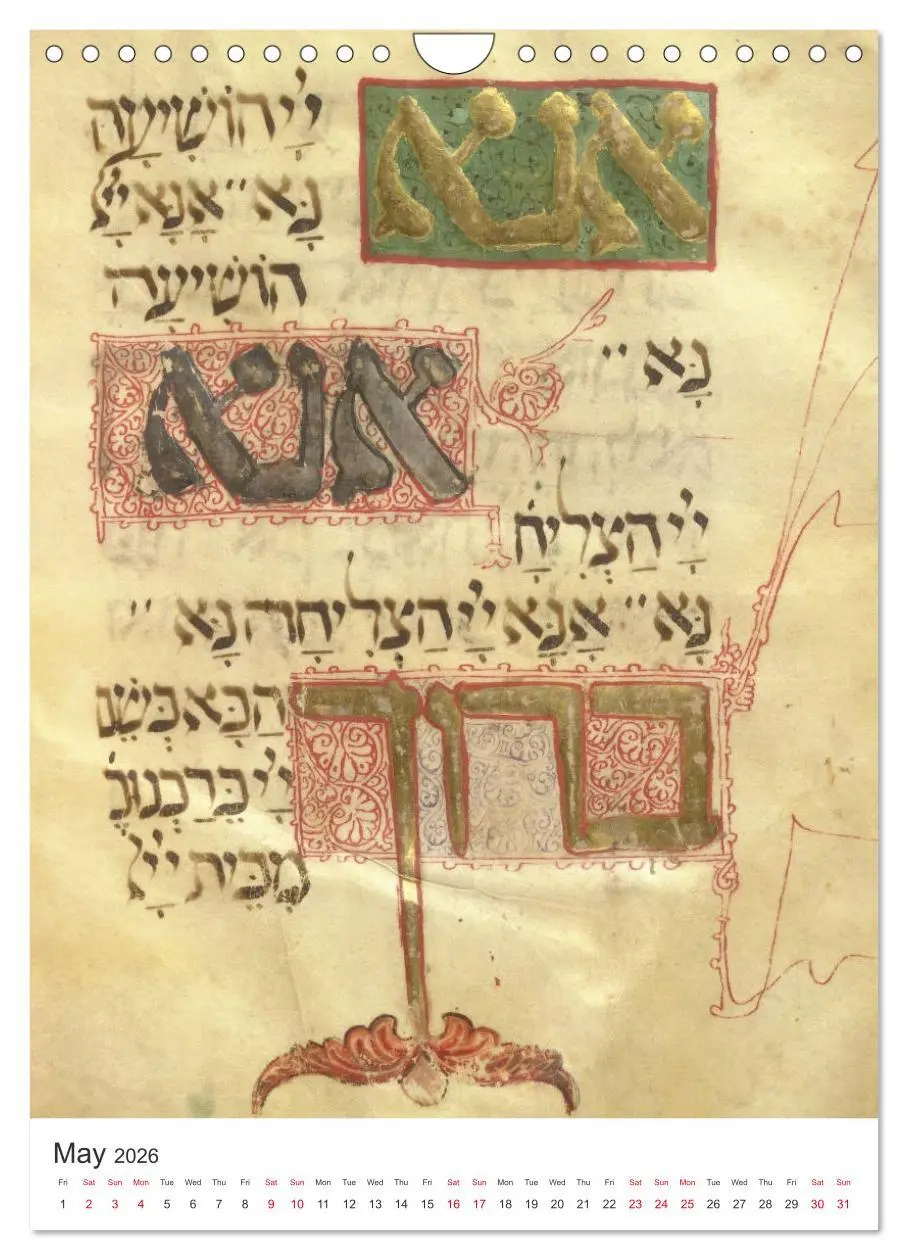 אנא יְיָ הוֹשִׁיעָה
נָּא ״ אָנָּא יְיָ
הוֹשִׁיעָה
נָּא ״ אנא
יְיָ הַצְלִיחָ
נָּא ״ אָנָּא יְיָ הַצְלִיחָה נָּא ״
ברוך הַבָּא בְּשֵׁם
יְיָ בֵּרַכְנוּכֶ
מִבֵּית יְיָ
May 2026
Fri Sat Sun Mon Tue Wed Thu Fri Sat Sun Mon Tue Wed Thu Fri Sat Sun Mon Tue Wed Thu Fri Sat Sun Mon Tue Wed Thu Fri Sat Sun
1 2 3 4 5 6 7 8 9 10 11 12 13 14 15 16 17 18 19 20 21 22 23 24 25 26 27 28 29 30 31